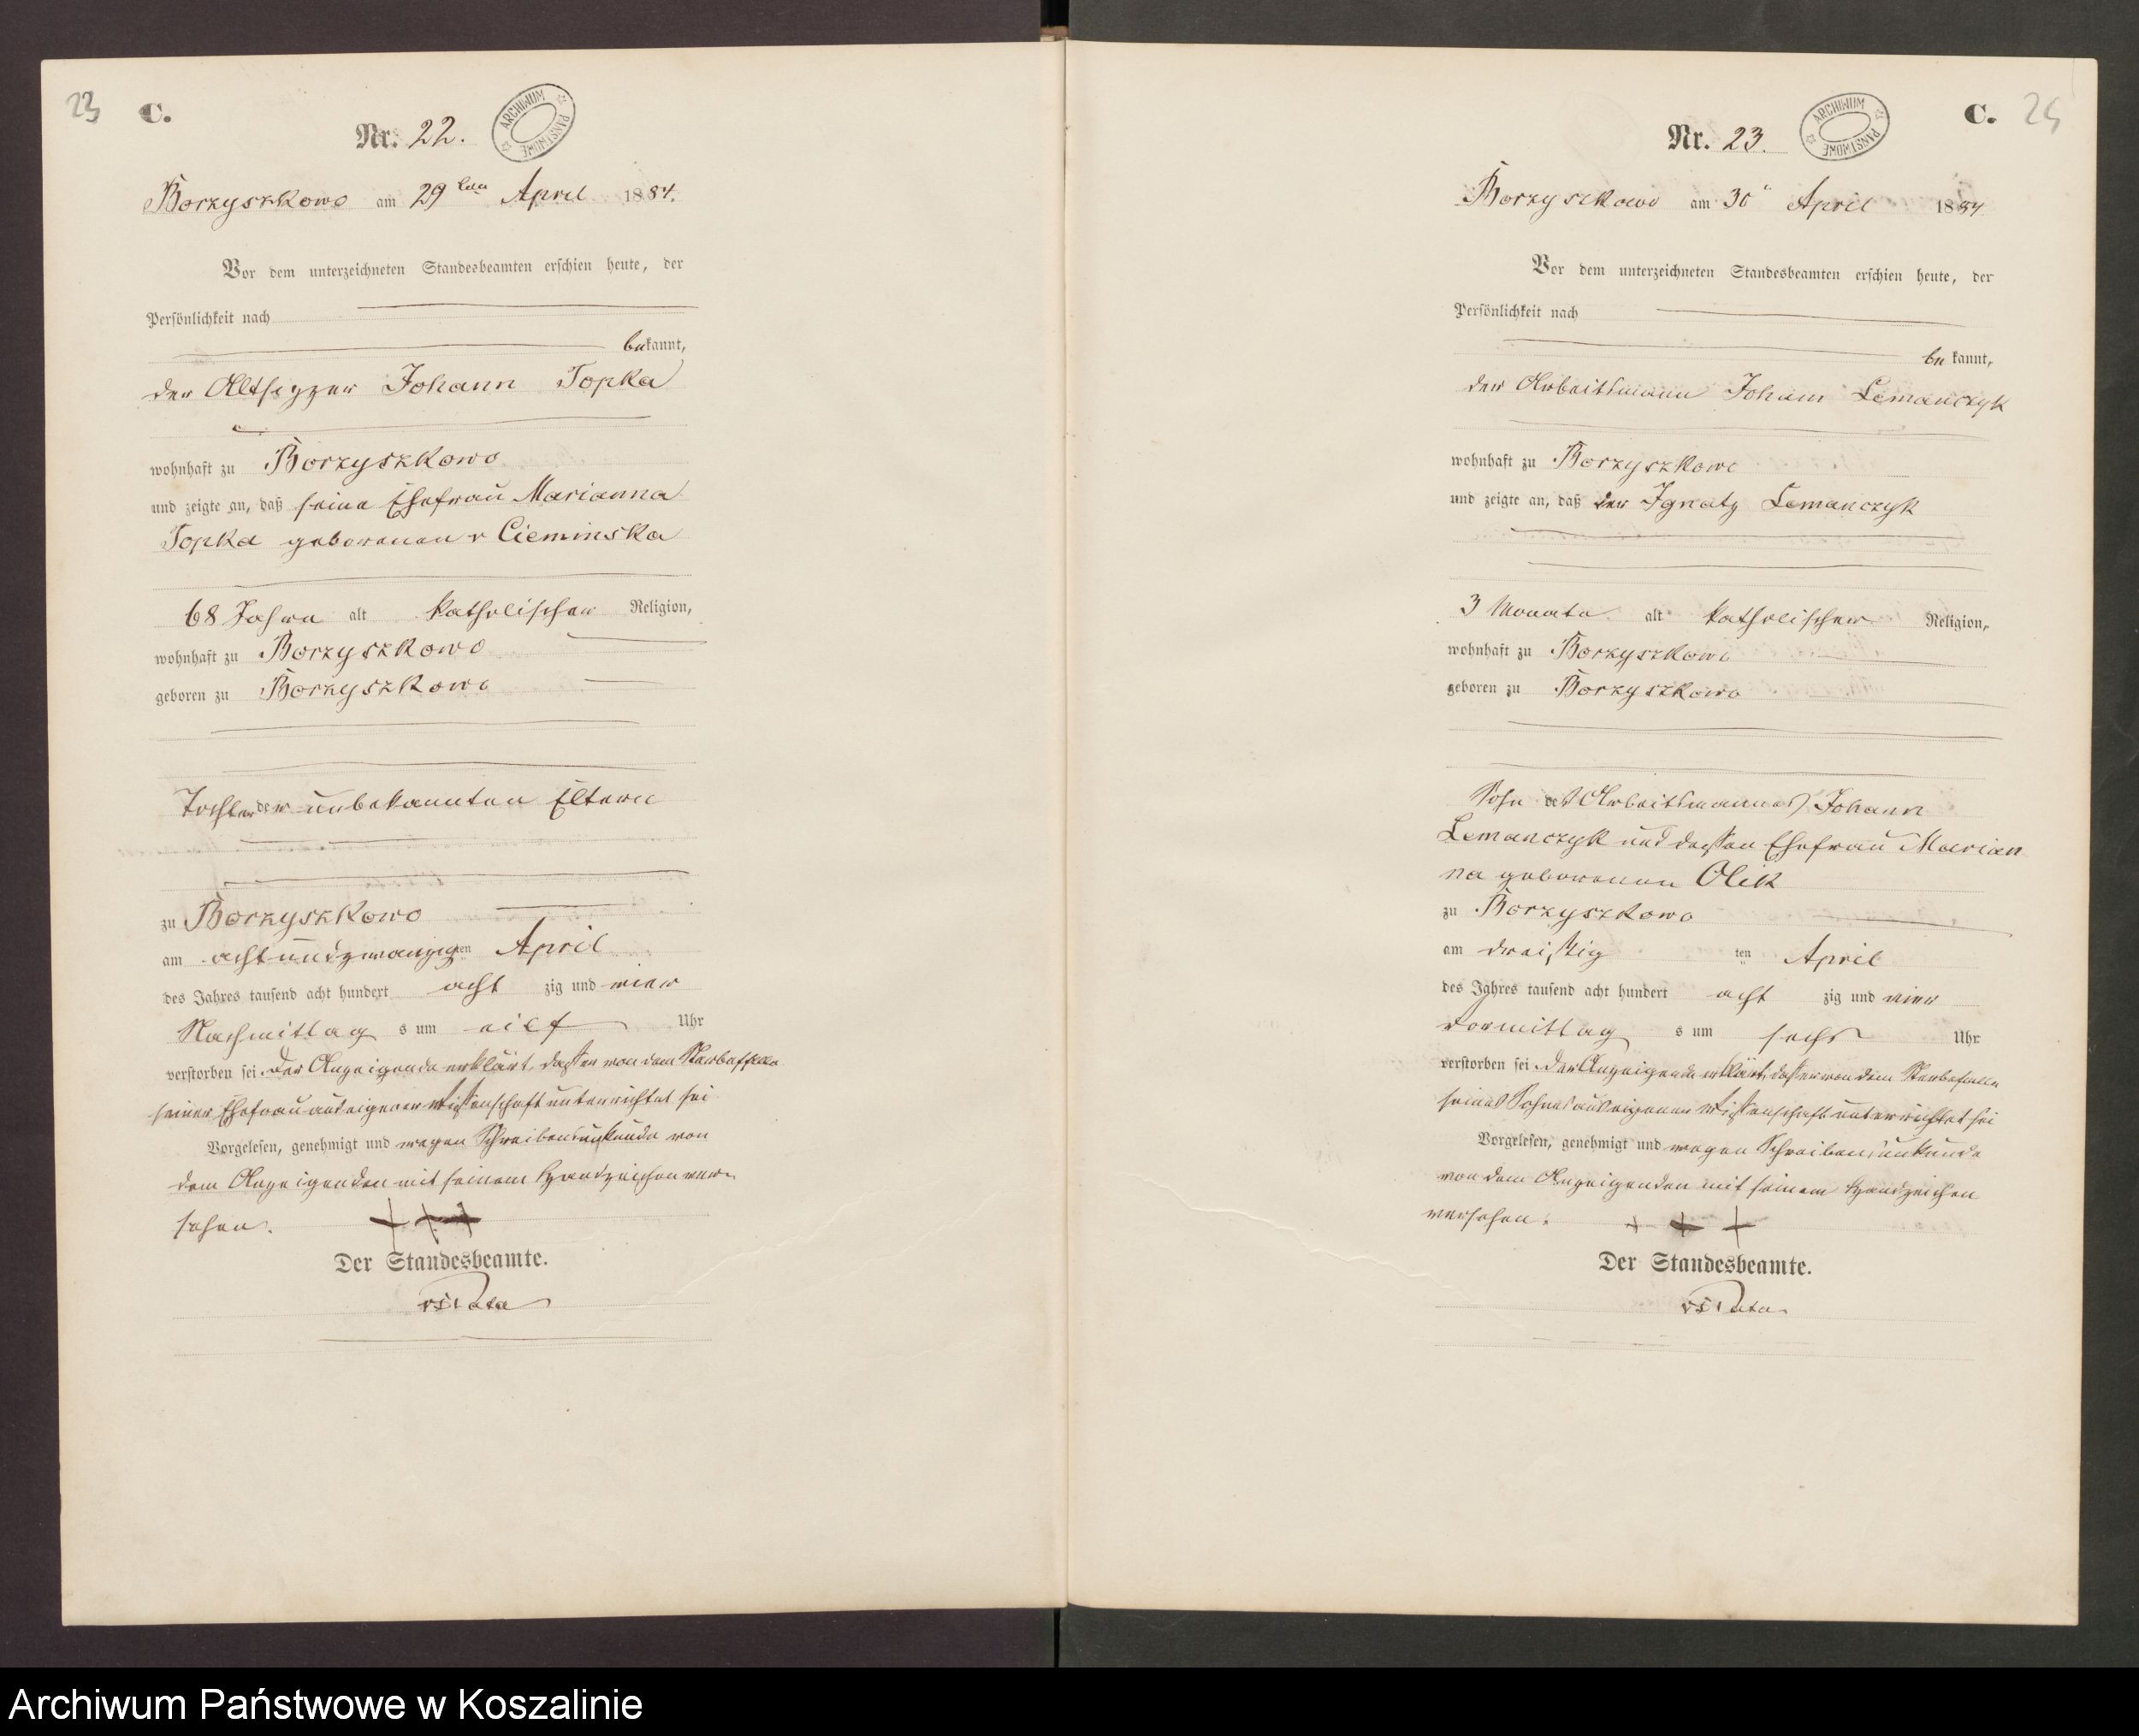 23 C.
Nr. 22.
ARCHIWUM PAŃSTWOWE
Borzyszkowo am 29ten April 1884.
Vor dem unterzeichneten Standesbeamten erschien heute, der
Persönlichkeit nach
bekannt,
der Altsitzer Johann Topka
wohnhaft zu Borzyszkowo
und zeigte an, daß seine Ehefrau Marianna
Topka geborenen v Cieminska
68 Jahre alt katholischer Religion,
wohnhaft zu Borzyszkowo
geboren zu Borzyszkowo
Tochter der unbekannten Eltern
zu Borzyszkowo
am achtundzwanzigten April
des Jahres tausend acht hundert acht zig und vier
Nachmittag s um eilf Uhr
verstorben sei. Der Anzeigende erklärt, dass er von dem Sterbefalle
seiner Ehefrau aus eigener Wissenschaft unterrichtet sei
Vorgelesen, genehmigt und wegen Schreibensunkunde von
dem Anzeigenden mit seinem Handzeichen ver-
sehen. + + +
Der Standesbeamte.
C. 24
Nr. 23.
ARCHIWUM PAŃSTWOWE
Borzyszkowo am 30" April 1884
Vor dem unterzeichneten Standesbeamten erschien heute, der
Persönlichkeit nach
be kannt,
der Arbeitsmann Johann Lemanczyk
wohnhaft zu Borzyszkowo
und zeigte an, daß der Ignatz Lemanczyk
3 Monate alt katholischer Religion,
wohnhaft zu Borzyszkowo
geboren zu Borzyszkowo
Sohn des Arbeitsmannes Johann
Lemanczyk und dessen Ehefrau Marian
na geborenen Olik
zu Borzyszkowo
am dreissig ten April
des Jahres tausend acht hundert acht zig und vier
vormittag s um sechs Uhr
verstorben sei. Der Anzeigende erklärt, dass er von dem Sterbefalle
seines Sohnes aus eigener Wissenschaft unterrichtet sei
Vorgelesen, genehmigt und wegen Schreibensunkunde
von dem Anzeigenden mit seinem Handzeichen
versehen. + + +
Der Standesbeamte.
Archiwum Państwowe w Koszalinie